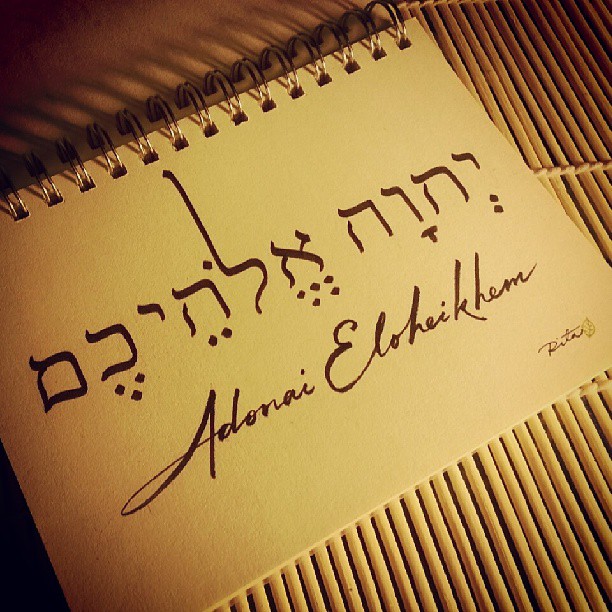 יְהֹוָה אֱלֹהֵיכֶם
Adonai Eloheikhem
Rita